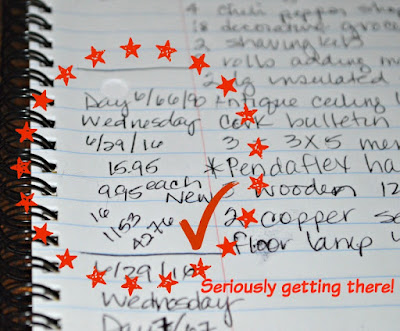 4 chili pepper shap
18 decorative groce
2 shaving kits
rolls adding ma
2 insulated
Day 6/66/90 Antique ceiling
Wednesday Cork bulletin
6/29/16 3 3X5 me
15.95 *Pendaflex ha
9.95 each New Wooden 12
16 1153 4276 2 copper se
floor lamp
6/29/16 Seriously getting there!
Wednesday
Day